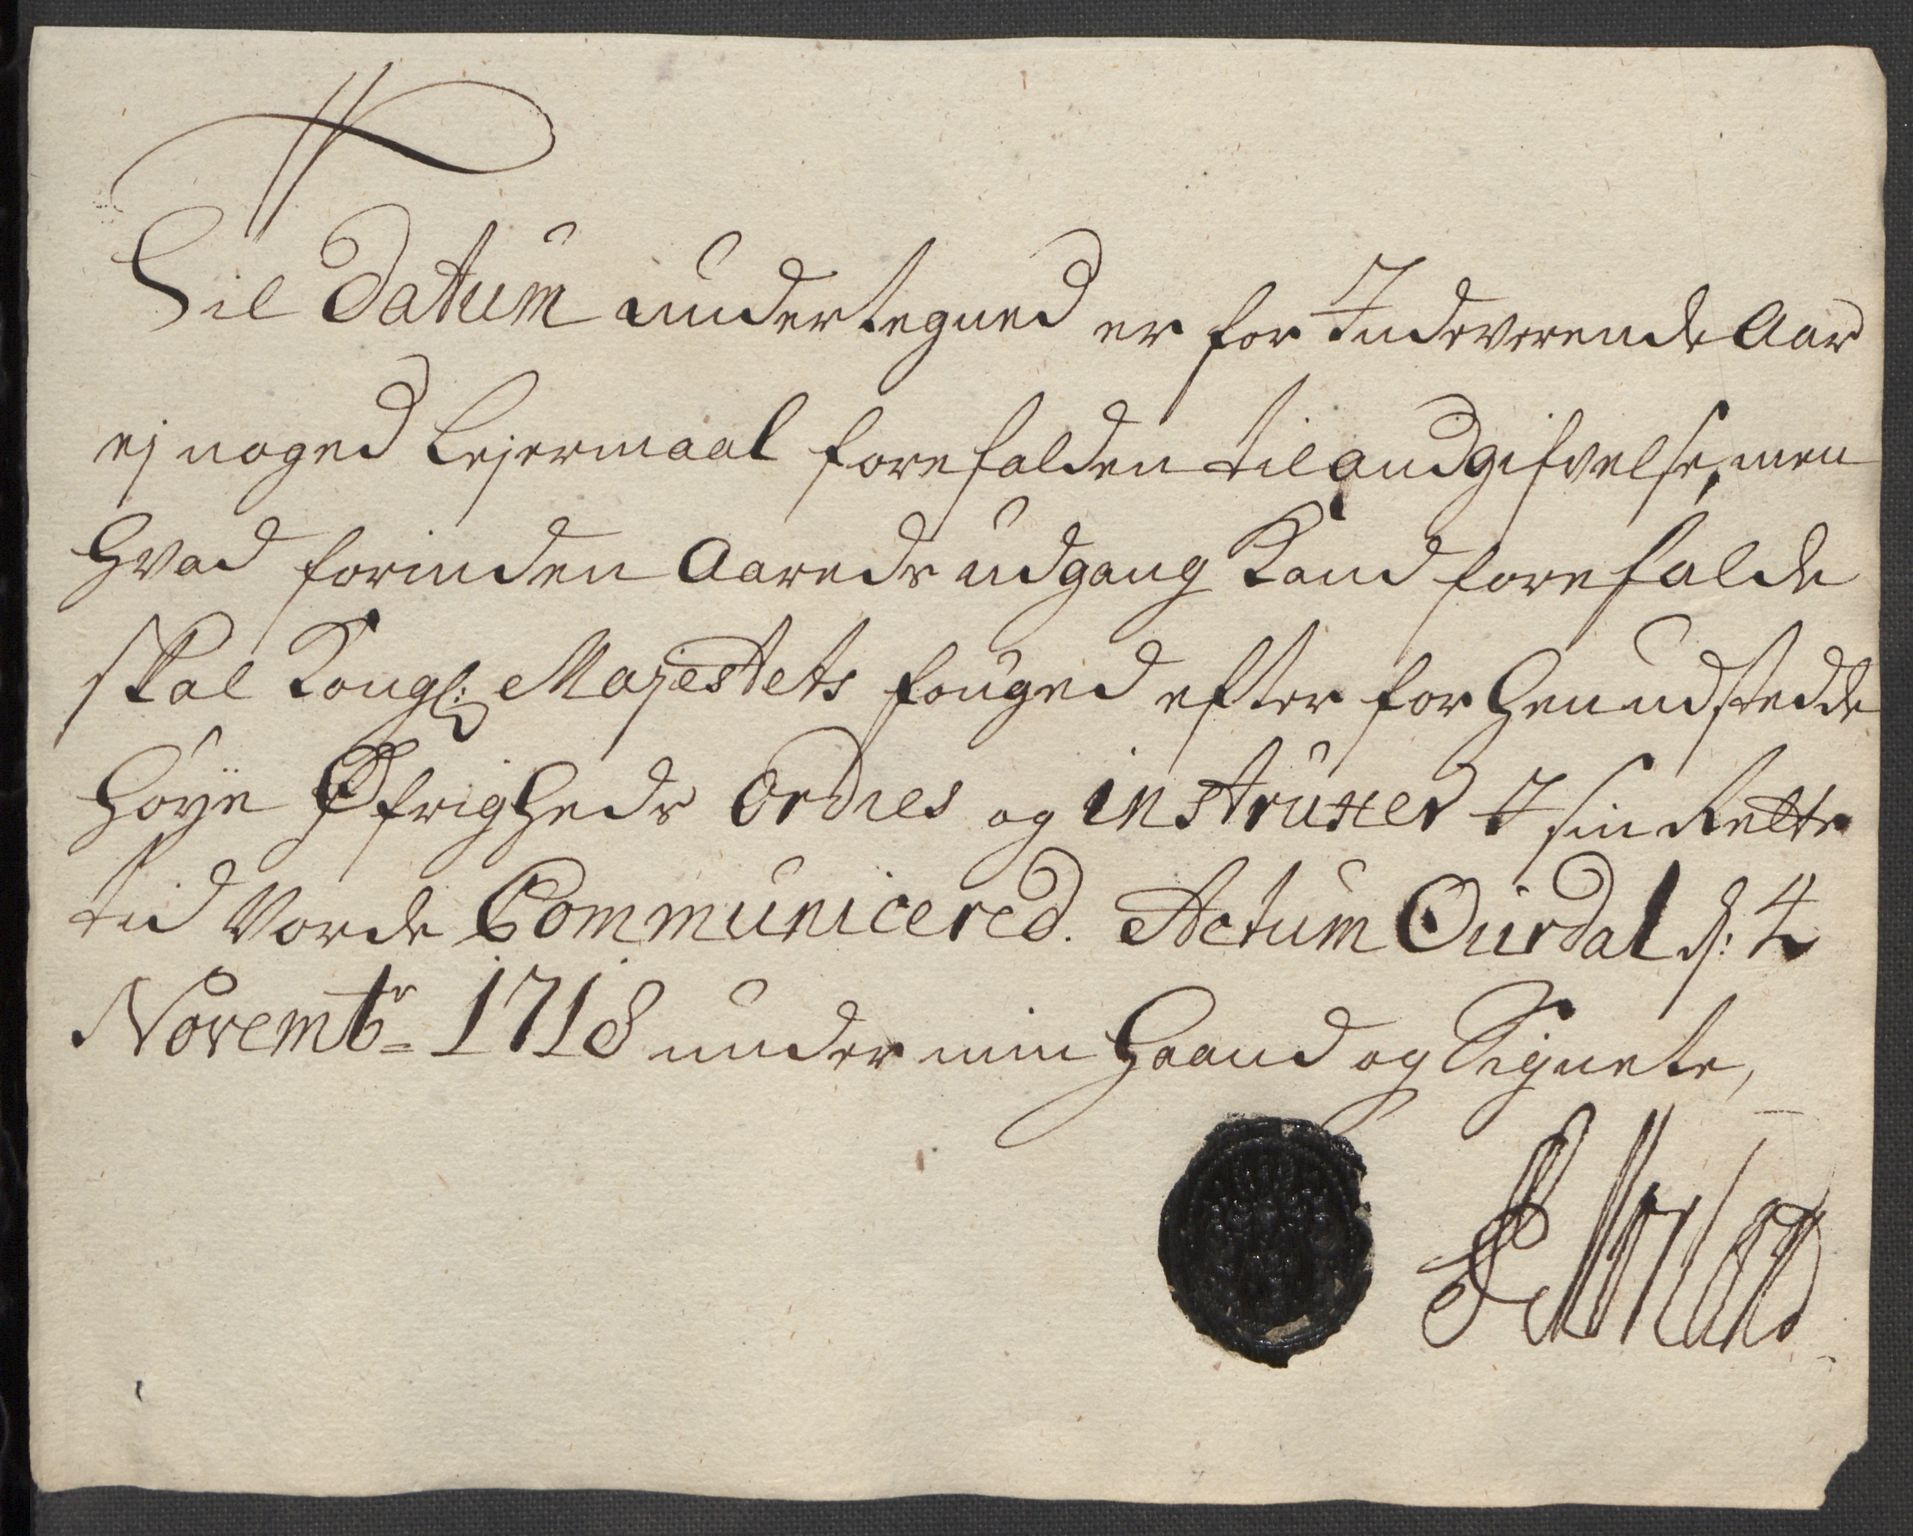 Til Datum undertegned er for Indeværende Aar
ej noged Lejermaal forefalden til andgifvelse, men
hvad forinden Aareds udgang Kand forefalde
skal Kongl: Majestets fouged efter for hen udstedde
høye Øfrigheds Ordres og instruxer I sin Rette
tid vorde Communicered. Actum Ourdal d: 4
Novembr= 1718 under min Haand og Signete,